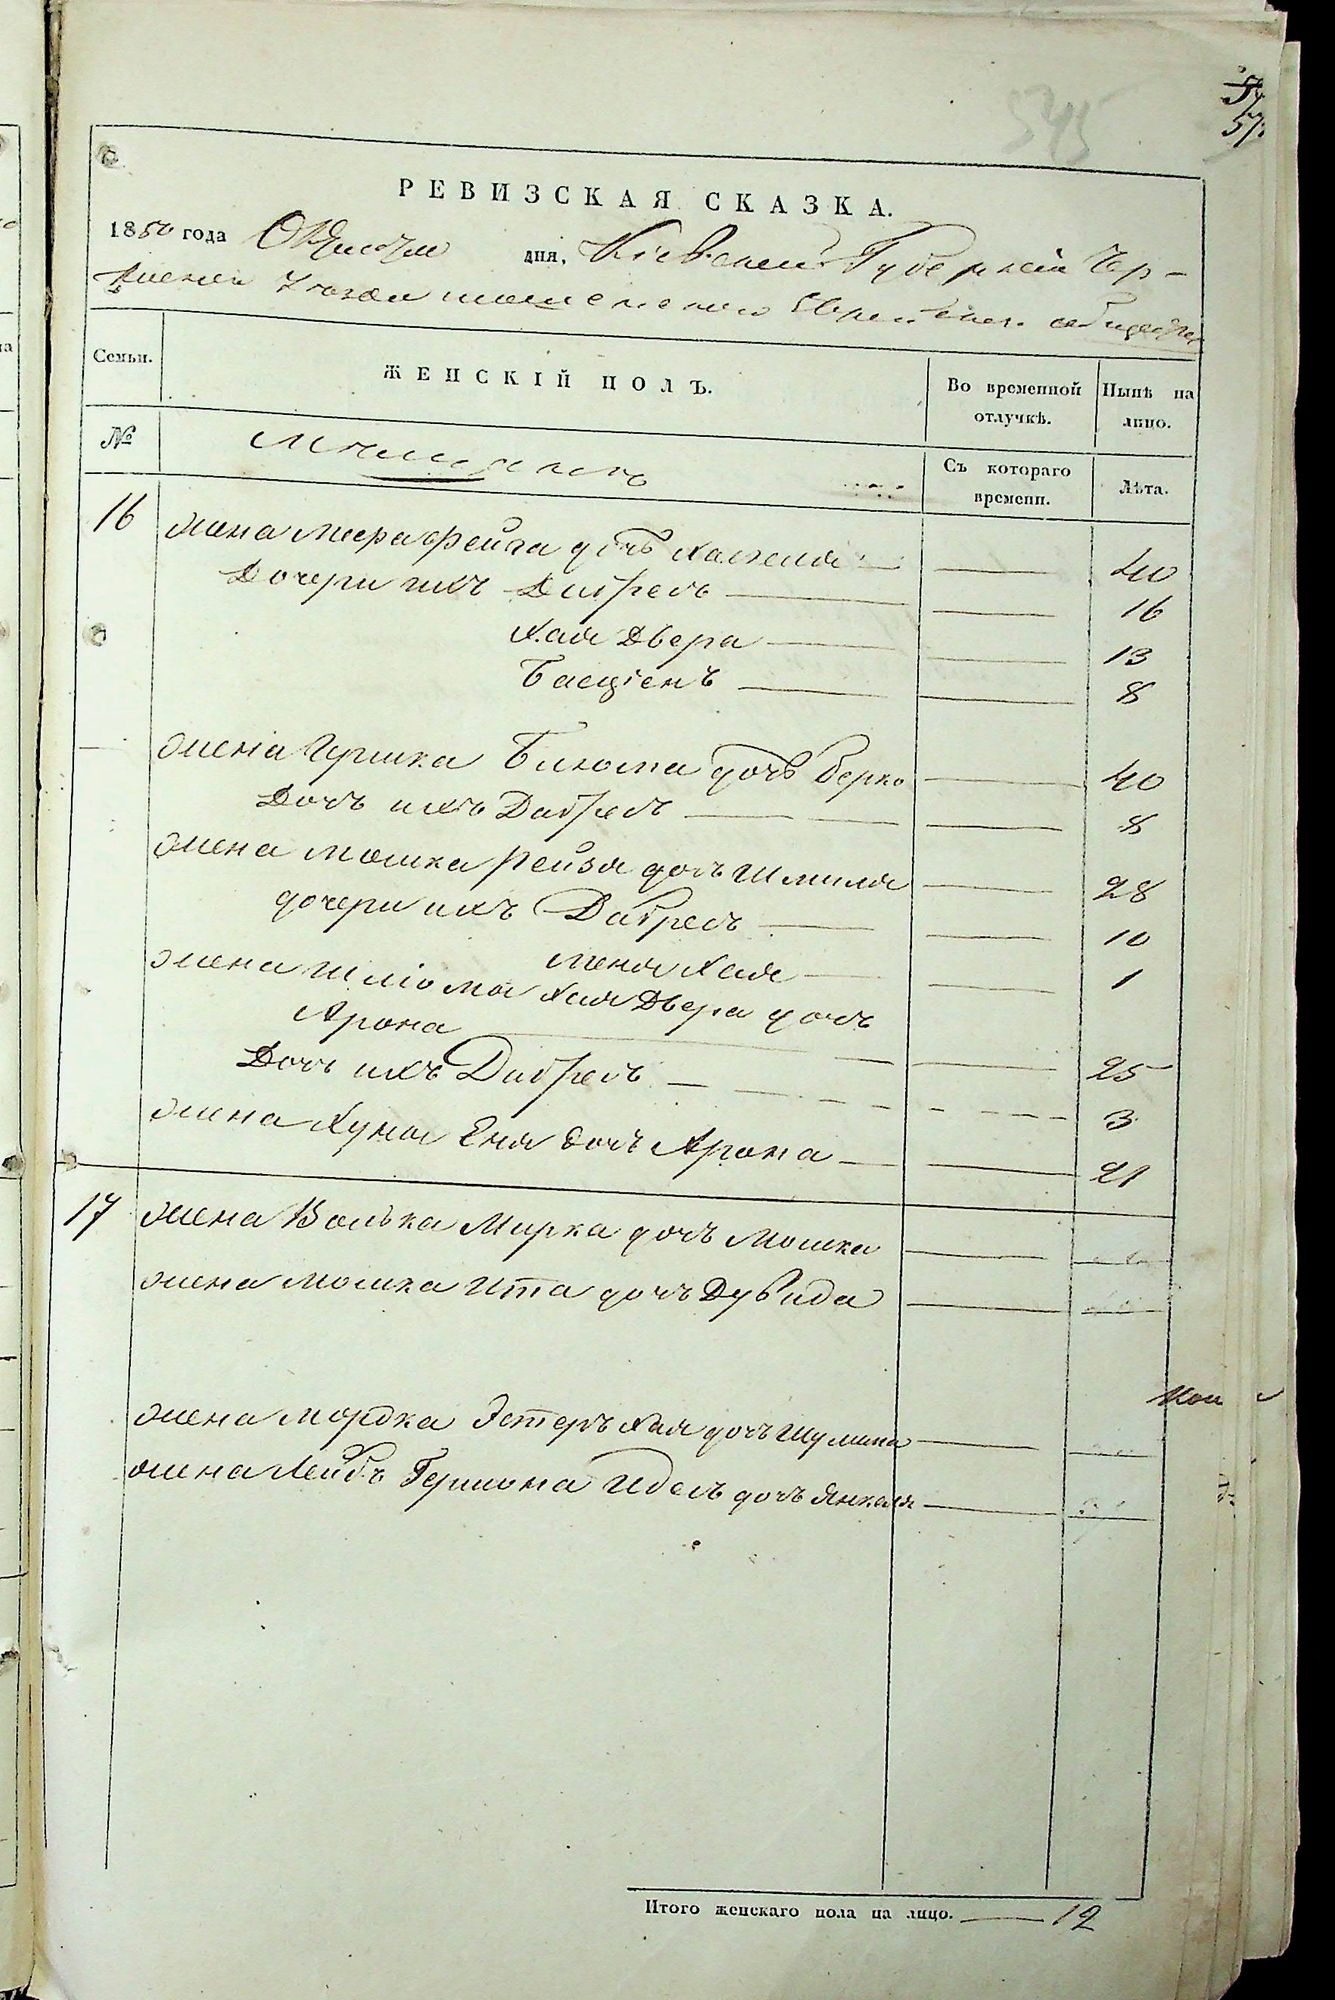 545
57
РЕВИЗСКАЯ СКАЗКА.
1850 года Октября дня, Кіевской Губерніи Чер-
каскаго Уезда Еврейскаго общества
Семьи. ЖЕНСКІЙ ПОЛЪ. Во временной отлучкѣ. Нынѣ на лицо.
№ Мещанъ Съ котораго времени. Лѣта.
16 жена Мера Фейга дочь Хаскеля 40
Дочери ихъ Добресь 16
Хая Двера 13
Басціенъ 8
жена Гершка Блюма дочь Берко 40
Дочь ихъ Добресь 8
жена Мошка Рейза дочь Шмиля 28
дочери ихъ Добресь 10
Меня Хая 1
жена Шліома Хая Двера дочь
Арона 25
Дочь ихъ Добресь 3
жена Хуна Еня дочь Арона 21
17 жена Волька Мирка дочь Мошка
жена Мошка Ита дочь Дувида
жена Мордка Эстеръ Хая дочь Шулима
жена Лейбъ Гершона Идесь дочь Янкеля
Итого женскаго пола на лицо. 12